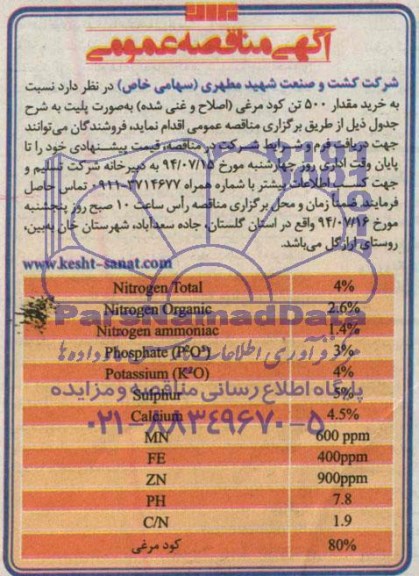 آگهی مناقصه عمومی
شرکت کشت و صنعت شهید مطهری (سهامی خاص) در نظر دارد نسبت
به خرید مقدار ۵۰۰ تن کود مرغی (اصلاح و غنی شده) به‌صورت پلیت به شرح
جدول ذیل از طریق برگزاری مناقصه عمومی اقدام نماید، فروشندگان می‌توانند
جهت دریافت فرم و شرایط شرکت در مناقصه، قیمت پیشنهادی خود را تا
پایان وقت اداری روز چهارشنبه مورخ ۹۴/۰۷/۱۵ به دبیرخانه شرکت تسلیم و
جهت کسب اطلاعات بیشتر با شماره همراه ۳۷۱۴۶۷۷-۰۹۱۱ تماس حاصل
فرمایند. ضمناً زمان و محل برگزاری مناقصه رأس ساعت ۱۰ صبح روز پنجشنبه
مورخ ۹۴/۰۷/۱۶ واقع در استان گلستان، جاده سعدآباد، شهرستان خان به‌بین،
روستای ارازگل می‌باشد.
www.kesht-sanat.com
Nitrogen Total 4%
Nitrogen Organic 2.6%
ParsNamadData
Nitrogen ammoniac 1.4%
Phosphate (P²O⁵) 3%
Potassium (K²O) 4%
پایگاه اطلاع رسانی مناقصه و مزایده
Sulphur 5%
Calcium 4.5%
۰۲۱-۸۸۳۴۹۶۷۰-۵
MN 600 ppm
FE 400ppm
ZN 900ppm
PH 7.8
C/N 1.9
کود مرغی 80%